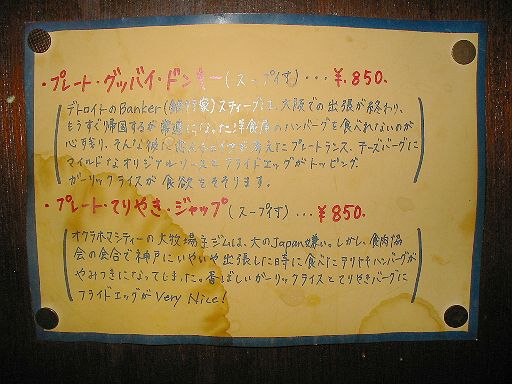 ・プレート・グッバイ・ドンキー(スープ付)・・・¥.850.
デトロイトのBanker(銀行家)スティーブは、大阪での出張が終わり、
もうすぐ帰国するが常連になった洋食屋のハンバーグを食べれないのが
心すぎり。そんな彼に 考えたプレートランス。チーズバーグに
マイルドなオリジナルソースとフライドエッグがトッピング.
ガーリックライスが食欲をそそります。
・プレート・てりやき・ジャップ(スープ付)・・・¥850.
オクラホマシティーの大牧場主ジムは、大のJapan嫌い。しかし、食肉協
会の会合で神戸にいやいや出張した時に食べたテリヤキハンバーグが
やみつきになってしまった。香ばしいガーリックライスとてりやきバーグに
フライドエッグがVery Nice!